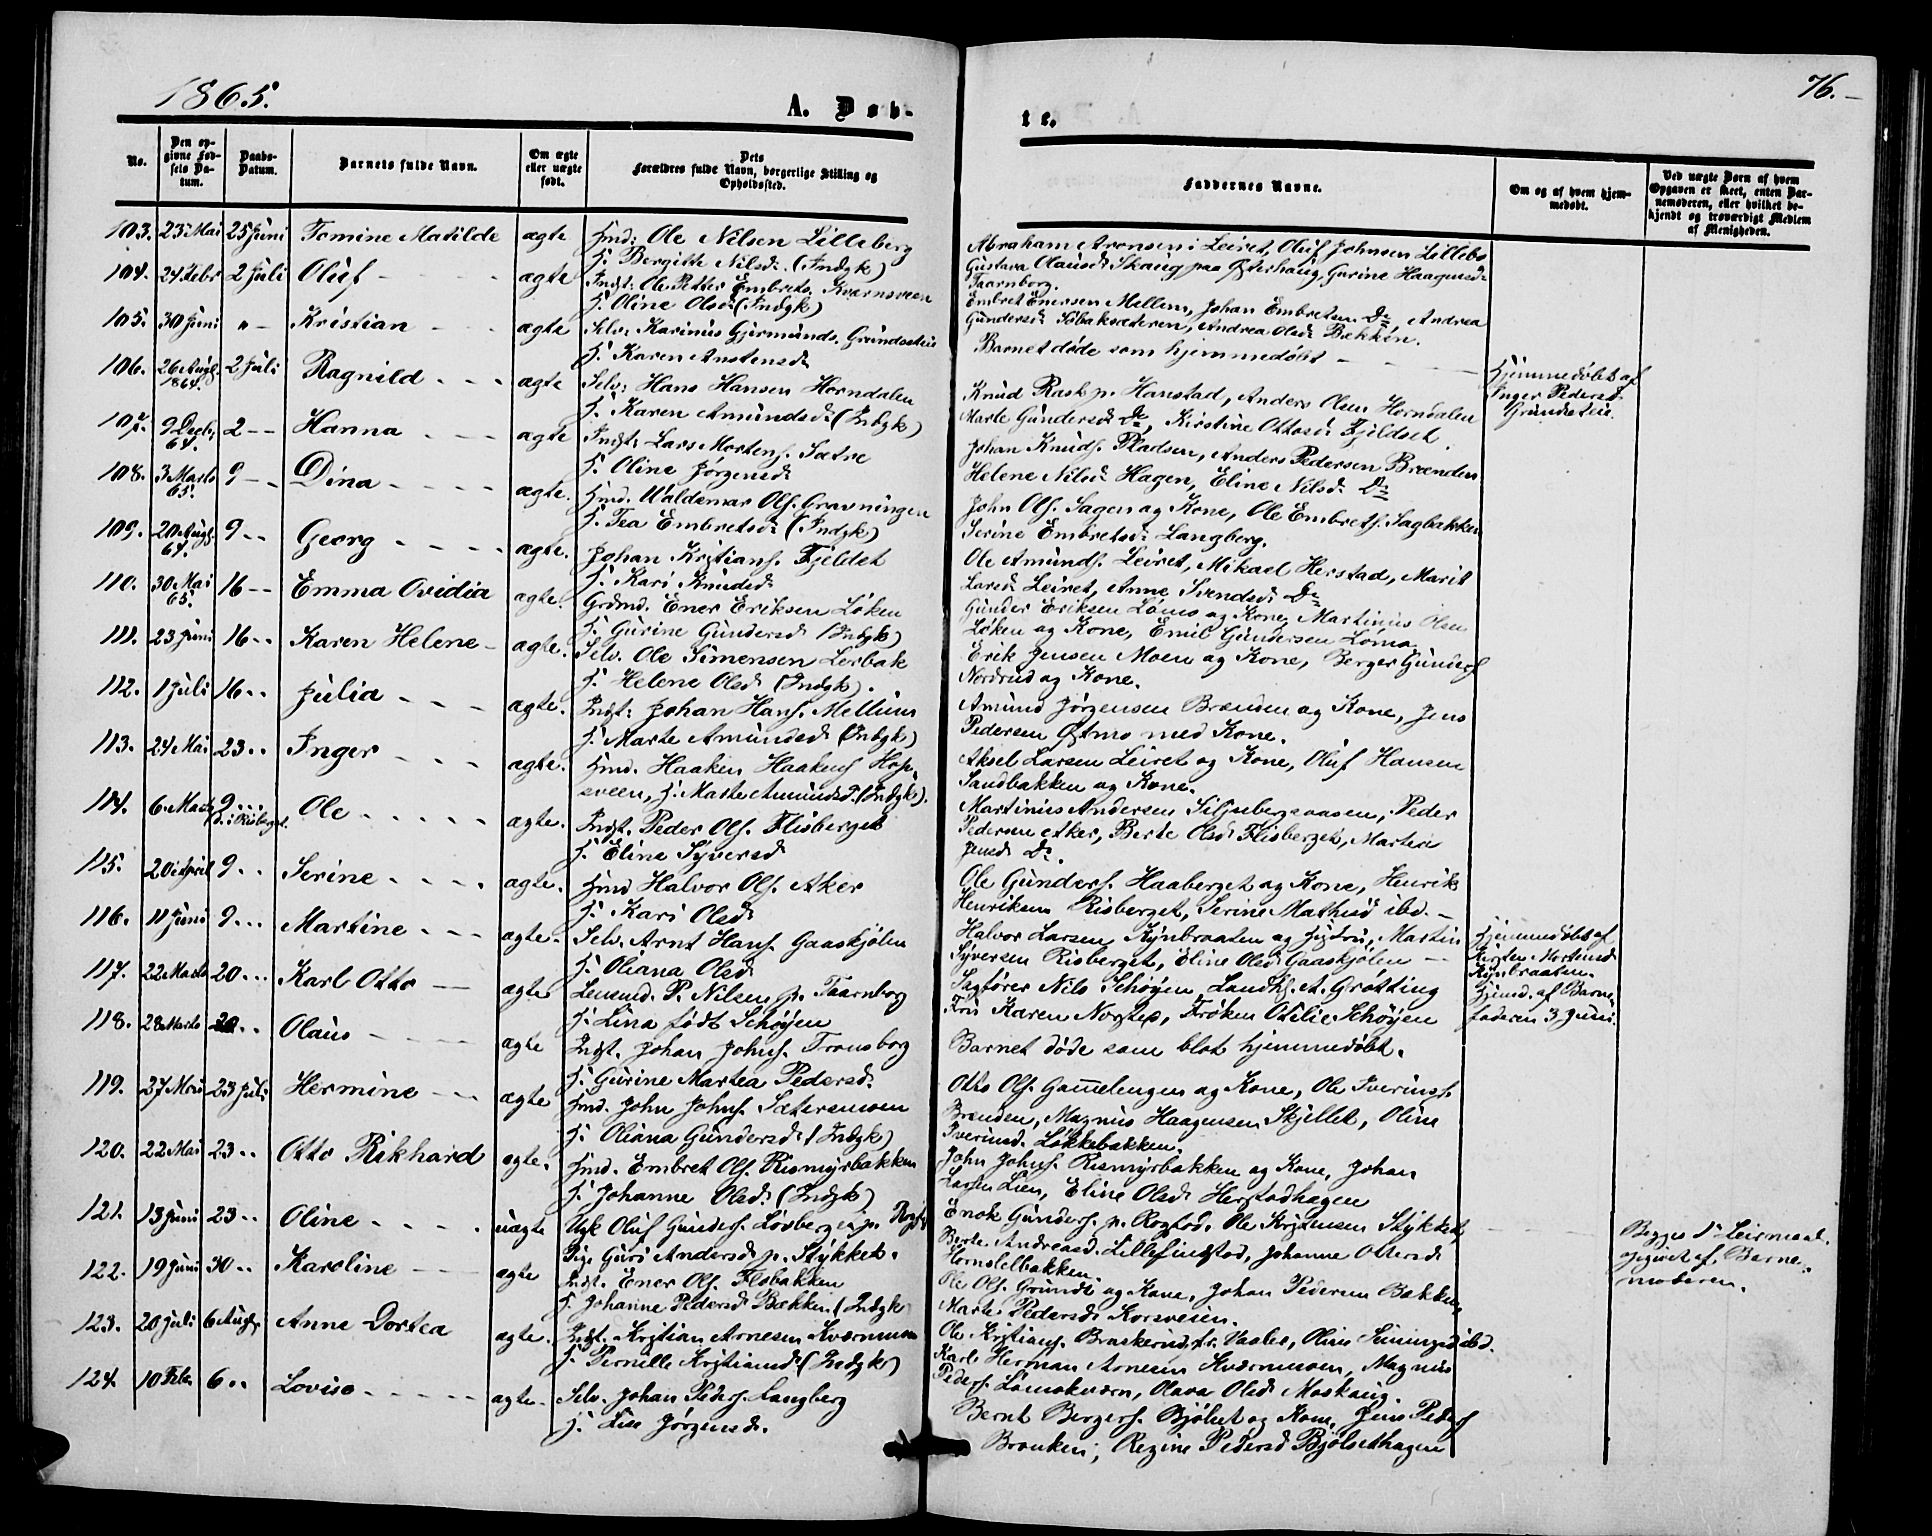 1865.
A. Døb-
te.
76.
No.
Den op-
givne Fød-
sels Da-
tum.
Daabs-
Datum.
Barnets fulde Navn.
Om ægte
eller uægte
født.
Dets
Forældres fulde Navn, borgerlige Stilling og
Opholdssted.
Faddernes Navne.
Om og af hvem hjem-
medøbt.
Ved uægte Børn af hvem
Opgaven er skeet, enten Bar-
nemoderen, eller hvilket be-
kjendt og troværdigt Medlem
af Menigheden.
103. 23 Mai 25 Juni Tomine Matilde ægte Hmd: Ole Nilsen Lilleberg
H. Bergitte Nilsd. (Indgk)
Abraham Aronsen i Leiret, Oluf Johnsen Lillebo
Gustava Olausd. Skaug paa Østerhaug, Gurine Haagensd.
Taarnborg.
104. 24 Febr 2 Juli Oluf ægte Indst: Ole Petter Embrets. Kvernsveen
H. Oline Olsd. (Indgk)
Embret Enersen Mellem, Johan Embretsen Do, Andrea
Gundersd. Sobaksæteren, Andrea Olsd. Bækken.
105. 30 Juni "- Kristian ægte Selv: Karinus Gjermunds. Grundseteie
H. Karen Anstensd.
Barnet døde som hjemmedøbt
Hjemmedøbt af
Inger Pedersd.
Grundseteie.
106. 26 Augs. 1864. 2 Juli Ragnild ægte Selv: Hans Hansen Horndalen
H. Karen Amundsd. (Indgk)
Knud Rask p. Hanstad, Anders Olsen Horndalen
Marte Gundersd. Do, Kirstine Ottosd. Fjeldset.
107. 9 Decbr. 64. 2-- Hanna ægte Indst: Lars Mortens. Sætre
H. Oline Jørgensd.
Johan Knuds. Pladsen, Anders Pedersen Brænden
Helene Nilsd. Hagen, Eline Nilsd. Do
108. 3 Marts 65. 9-- Dina ægte. Hmd. Waldemar Ols. Gravningen
H. Tea Embretsd. (Indgk)
John Ols. Sagen og Kone, Ole Embrets. Sagbakken
Serine Embretsd. Langberg.
109. 20 Augs. 64. 9-- Georg ægte. Johan Kristians. Fjeldet
H. Kari Knudsd.
Ole Amunds. Leiret, Mikael Herstad, Marit
Larsd. Leiret, Anne Svendsd. Do
110. 30 Mai 65. 16-- Emma Ovidia ægte. Grdmd. Ener Eriksen Løken
H. Gurine Gundersd. (Indgk)
Gunder Eriksen Lømo og Kone, Martinius Olsen
Løken og Kone, Emil Gundersen Lømo.
111. 23 Juni 16-- Karen Helene ægte. Selv. Ole Simensen Lerbak
H. Helene Olsd. (Indgk).
Erik Jensen Moen og Kone, Berger Gunders.
Nordrud og Kone.
112. 1 Juli 16-- Julia ægte. Indst: Johan Hans. Mellum
H. Marte Amundsd. (Indgk)
Amund Jørgensen Brænden og Kone, Jens
Pedersen Østmo med Kone.
113. 24 Mai 23-- Inger ægte. Hmd. Haaken Haakens. Hop-
sveen, H. Marte Amundsd. (Indgk).
Aksel Larsen Leiret og Kone, Oluf Hansen
Sandbakken og Kone.
114. 6 Marts 9-- Ole ægte. Indst. Peder Ols. Flisberget
H. Eline Syversd.
Martinus Andersen Siljubergsaasen, Peder
Pedersen Aker, Berte Olsd. Flisberget, Martea
Jensd. Do.
115. 20 April 9-- Serine ægte. Hmd Halvor Ols. Aker
H. Kari Olsd.
Ole Gunders. Haaberget og Kone, Henrik
Henriksen Risberget, Serine Mathisd. ibd.
116. 11 Juni 9-- Martine ægte. Selv. Arnt Hans. Gaaskjølen
H. Oliana Olsd.
Halvor Larsen Kynbraaten og Hustru, Martin
Syversen Risberget, Eline Olsd. Gaaskjølen
Hjemmedøbt af
Kersten Mortensd.
Kynbraaten.
117. 22 Marts 20-- Karl Otto ægte Lensmd. P. Nilsen p. Taarnborg
H. Lina født Schøyen
Sagfører Nils Schøyen, Landh. A. Grøtting
Frøk. Karen Norsted, Frøken Otilie Schøyen
Hjmd. af Barne-
faderen 3 Juni.
118. 28 Marts 20-- Olaus ægte Indst. Johan Johns. Tronsborg
H. Gurine Martea Pedersd.
Barnet døde som blot hjemmedøbt.
119. 27 Mai 23 Juli Hermine ægte Hmd. John Johns. Sæteremoen
H. Oliana Gundersd. (Indgk)
Otto Ols. Gammelengen og Kone, Ole Iverins.
Brænden, Magnus Haagensen Skjellet, Oline
Iverinsd. Løkkebakken.
120. 22 Mai 23-- Otto Rikhard ægte. Hmd. Embret Ols. Rismyrbakken
H. Johanne Olsd. (Indgk)
John Johns. Rismyrbakken og Kone, Johan
Larsen Lien, Eline Olsd. Herstadhagen
121. 13 Juni 23-- Oline uægte Ugk Oluf Gunders. Løvberget p. Rogst
Pige Guri Andersd. p. Stykket.
Enok Gunders. p. Rogstad, Ole Kristensen Stykket,
Berte Andreasd. Lillefinstad, Johanne Ottersd.
Hornsletbakken.
Begges 1' Leiermaal.
opgivet af Barne-
moderen.
122. 19 Juni 30-- Karoline ægte Indst. Ener Ols. Flobakken
H. Johanne Pedersd. Bækken (Indgk)
Ole Ols. Grundt og Kone, Johan Pedersen Bækken
Marte Pedersd. Korsveien.
123. 20 Juli 6 Augs. Anne Dortea ægte. Indst. Kristian Arnesen Kværnmoen
H. Pernille Kristiansd. (Indgk)
Ole Kristians. Braskerud, fr. Vaaler, Oline Simensd. ibd.
Karl Herman Arnesen Kværnmoen, Magnus
Peders. Lømokværn, Olava Olsd. Moskaug.
124. 10 Febr. 6-- Lovise ægte. Selv. Johan Peders. Langberg
H. Lise Jørgensd.
Bernt Bergers. Bjølset og Kone, Jens Peders.
Brænken, Regine Pedersd. Bjølsethagen